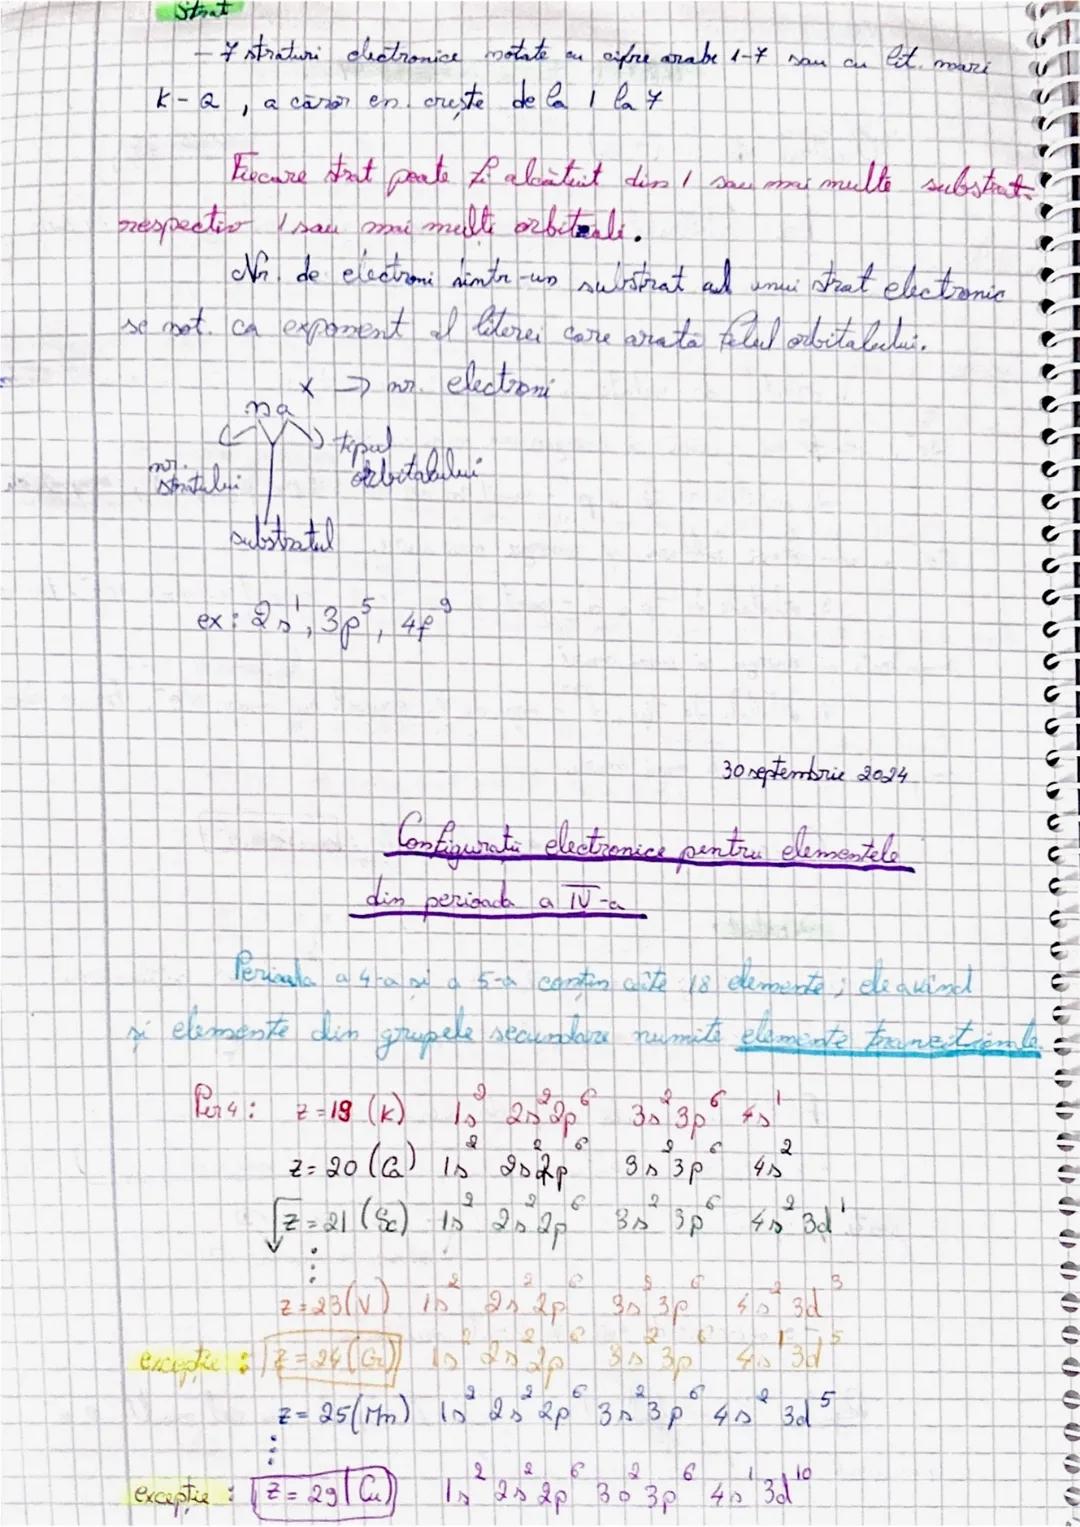 Strat
– 7 straturi electronice notate cu cifre arabe 1-7 sau cu lit. mari
K-Q, a căror en. crește de la 1 la 7
Fiecare strat poate fi alcătuit din 1 sau mai multe substrat.
respectiv 1 sau mai multi orbitali.
Nr. de electroni dintr-un substrat al unui strat electronic
se not. ca exponent al literei care arată felul orbitalului.
x => nr. electroni
na
tipul
orbitalului
nr.
stratului
substratul
ex: 2s¹, 3p⁵, 4f⁹
30 septembrie 2024
Configurații electronice pentru elementele
din perioada a IV-a
Perioada a 4-a și a 5-a conțin câte 18 elemente; ele având
și elemente din grupele secundare numite elemente tranziționale.
Per 4: Z=19 (K) 1s² 2s²2p⁶ 3s²3p⁶ 4s¹
Z=20 (Ca) 1s² 2s²2p⁶ 3s²3p⁶ 4s²
Z=21 (Sc) 1s² 2s²2p⁶ 3s²3p⁶ 4s²3d¹
⋮
Z=23(V) 1s² 2s²2p⁶ 3s²3p⁶ 4s²3d³
excepție: Z=24(Cr) 1s² 2s²2p⁶ 3s²3p⁶ 4s¹3d⁵
Z=25(Mn) 1s² 2s²2p⁶ 3s²3p⁶ 4s²3d⁵
⋮
excepție: Z=29(Cu) 1s² 2s²2p⁶ 3s²3p⁶ 4s¹3d¹⁰